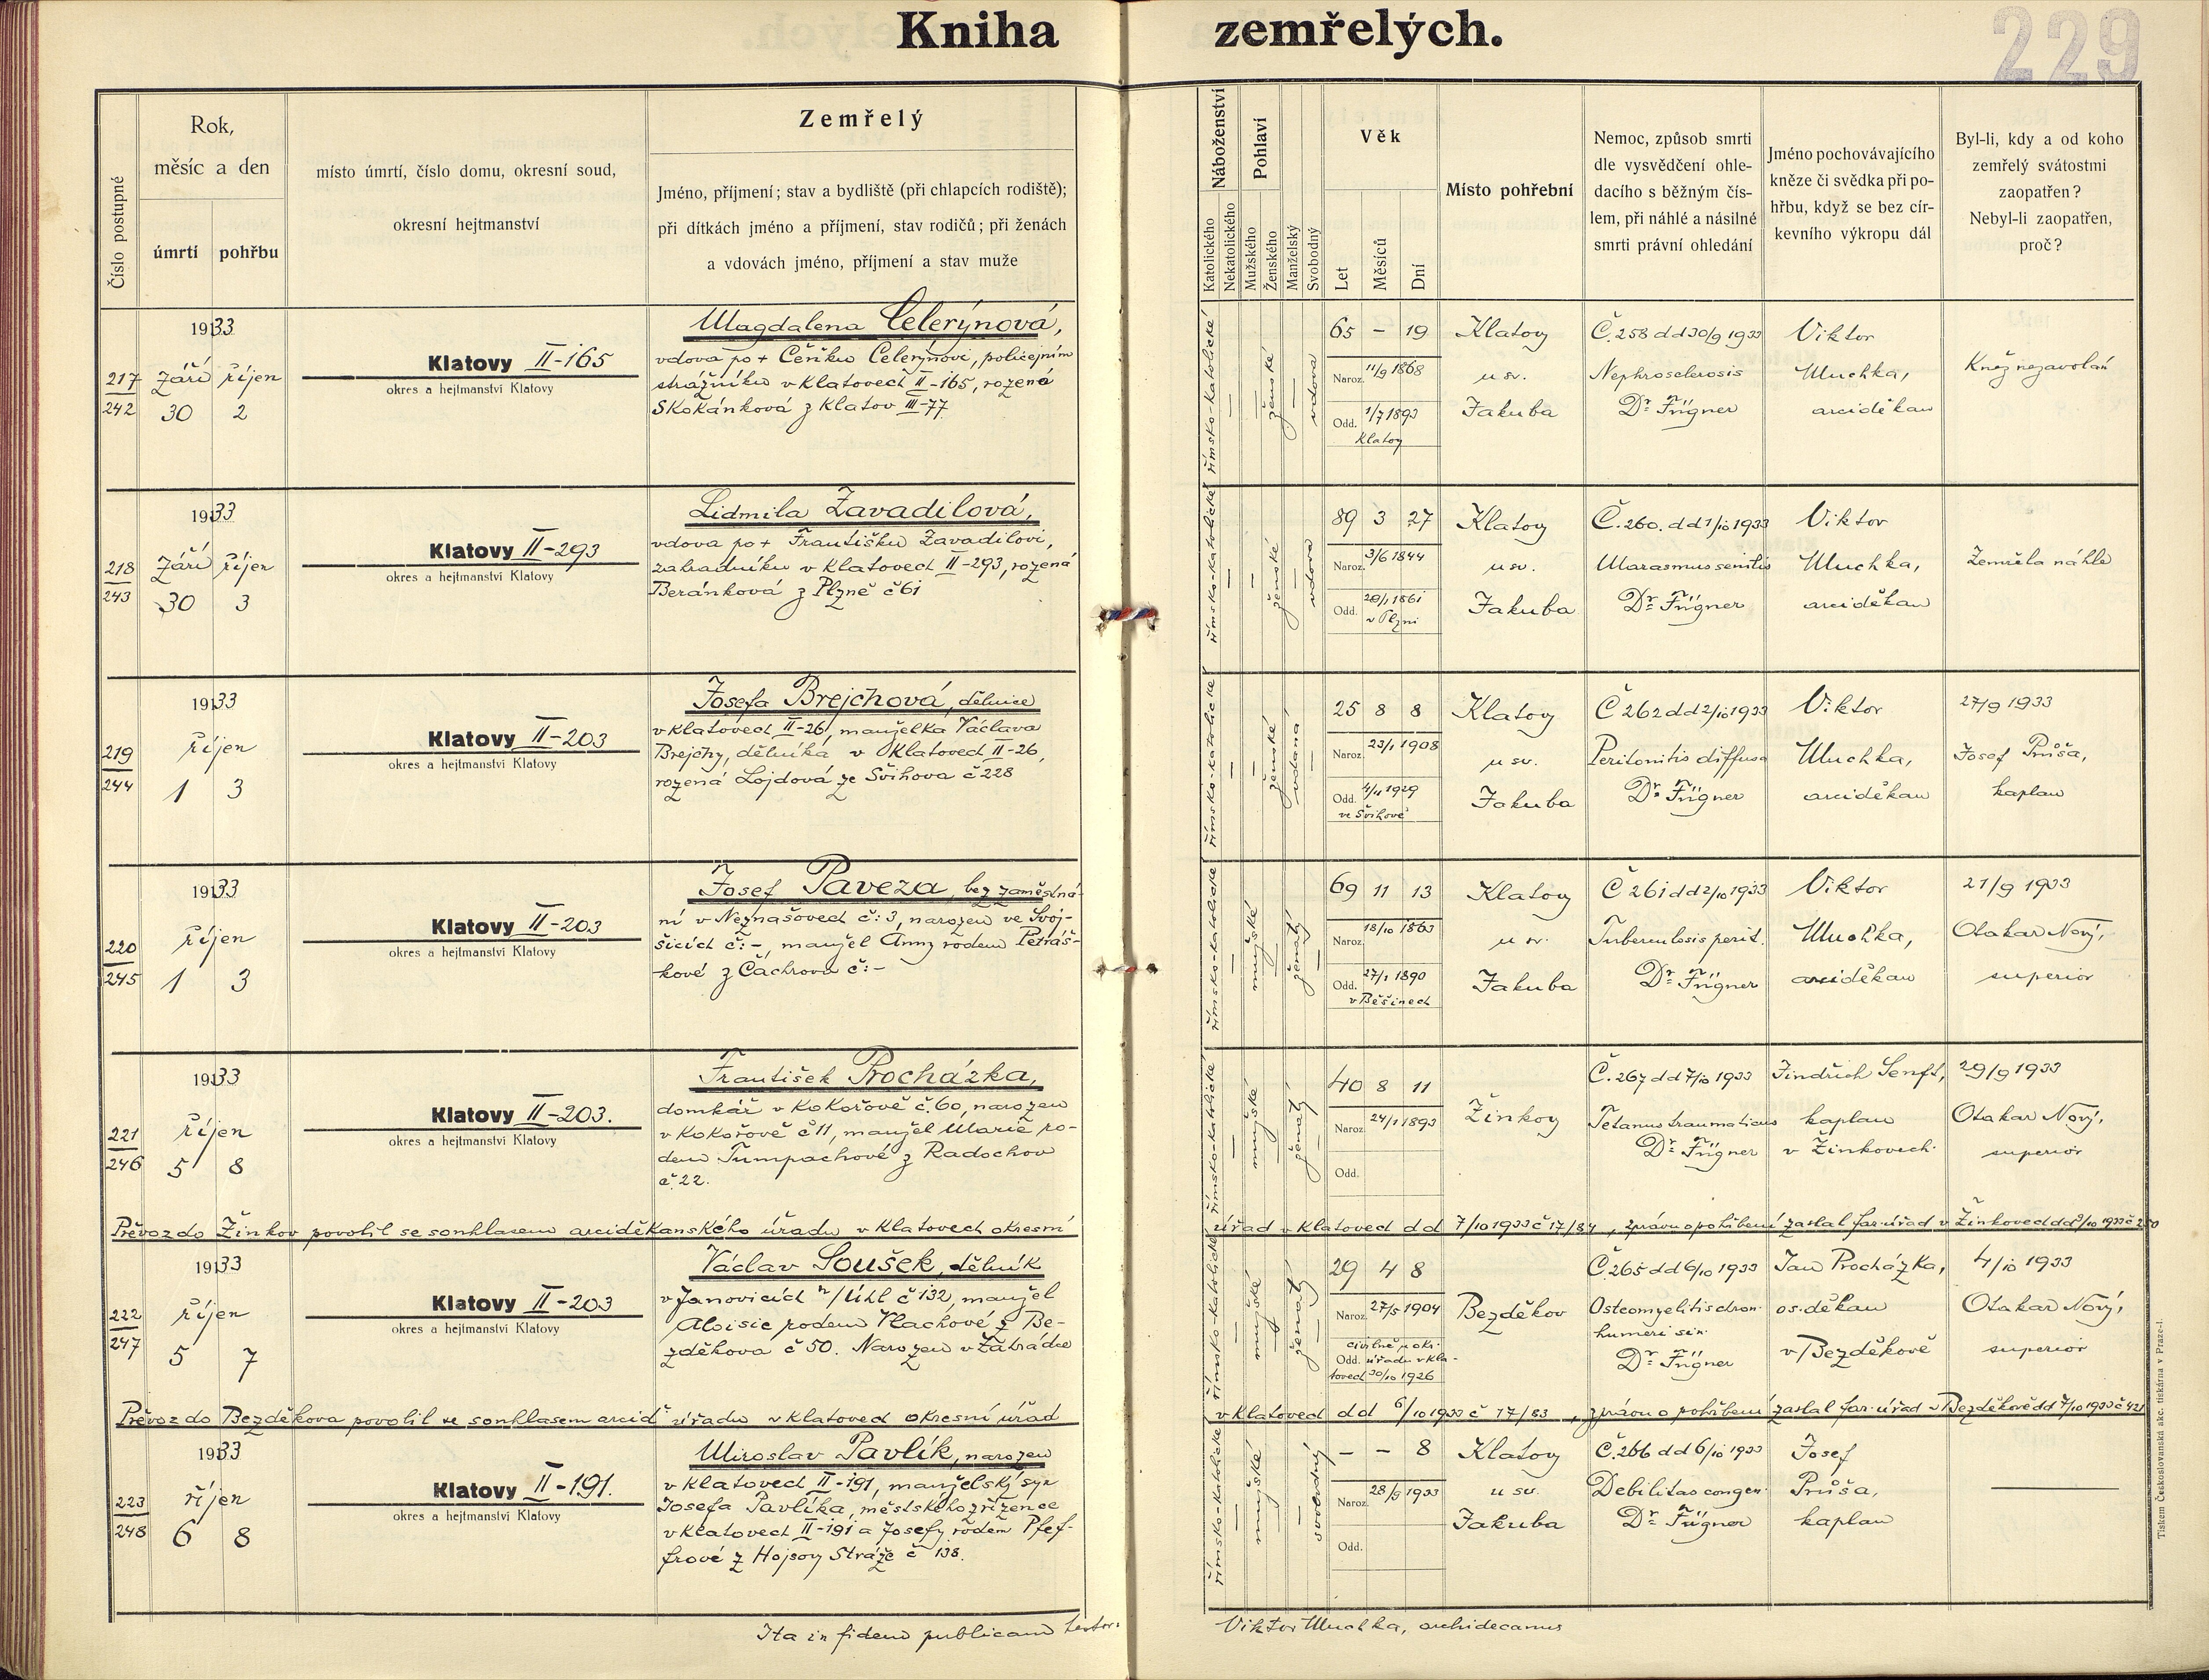 Kniha zemřelých.
229
Číslo postupné
Rok,
měsíc a den
úmrtí
pohřbu
místo úmrtí, číslo domu, okresní soud,
okresní hejtmanství
Zemřelý
Jméno, příjmení; stav a bydliště (při chlapcích rodiště);
při dítkách jméno a příjmení, stav rodičů; při ženách
a vdovách jméno, příjmení a stav muže
Náboženství
Katolického
Nekatolického
Pohlaví
Mužského
Ženského
Manželský
Svobodný
Věk
Let
Měsíců
Dní
Místo pohřební
Nemoc, způsob smrti
dle vysvědčení ohle-
dacího s běžným čís-
lem, při náhlé a násilné
smrti právní ohledání
Jméno pochovávajícího
kněze či svědka při po-
hřbu, když se bez cír-
kevního výkropu dál
Byl-li, kdy a od koho
zemřelý svátostmi
zaopatřen?
Nebyl-li zaopatřen,
proč?
217
242
1933
Září říjen
30 2
Klatovy II-165
okres a hejtmanství Klatovy
Magdalena Celerýnová,
vdova po + Čeňku Celerýnovi, policejním
strážníku v Klatovech II-165, rozená
Skokánková z Klatov III-77
římsko-katolické
ženské
vdova
65 – 19
Naroz. 11/9 1868
Odd. 1/7 1893
Klatovy
Klatovy
u sv.
Jakuba
Č. 258 dd 30/9 1933
Nephrosclerosis
Dr. Fügner
Viktor
Muchka,
arciděkan
Kněz nezavolán
218
243
1933
Září říjen
30 3
Klatovy II-293
okres a hejtmanství Klatovy
Lidmila Zavadilová,
vdova po + Františku Zavadilovi,
zahradníku v Klatovech II-293, rozená
Beránková z Plzně č 61
římsko-katolické
ženské
vdova
89 3 27
Naroz. 3/6 1844
Odd. 1861
v Plzni
Klatovy
u sv.
Jakuba
Č. 260. dd 1/10 1933
Marasmus senilis
Dr. Fügner
Viktor
Muchka,
arciděkan
Zemřela náhle
219
244
1933
říjen
1 3
Klatovy II-203
okres a hejtmanství Klatovy
Josefa Brejchová, dělnice
v Klatovech II-26, manželka Václava
Brejchy, dělníka v Klatovech II-26,
rozená Lojdová ze Švihova č 228
římsko-katolické
ženské
vdaná
25 8 8
Naroz. 23/1 1908
Odd. 1929
ve Švihově
Klatovy
u sv.
Jakuba
Č 262 dd 2/10 1933
Peritonitis diffusa
Dr. Fügner
Viktor
Muchka,
arciděkan
27/9 1933
Josef Průša,
kaplan
220
245
1933
říjen
1 3
Klatovy II-203
okres a hejtmanství Klatovy
Josef Paveza, bez zaměstná-
ní v Neznašovech č: 3, narozen ve Svoj-
šicích č: –, manžel Anny rodem Petráš-
kové z Čachrova č: –
římsko-katolické
mužské
ženatý
69 11 13
Naroz. 18/10 1863
Odd. 27/1 1890
v Běšinech
Klatovy
u sv.
Jakuba
Č 261 dd 2/10 1933
Tuberculosis perit.
Dr. Fügner
Viktor
Muchka,
arciděkan
21/9 1933
Otakar Nový,
superior
221
246
1933
říjen
5 8
Klatovy II-203.
okres a hejtmanství Klatovy
František Procházka,
domkář v Kokořově č. 60, narozen
v Kokořově č 11, manžel Marie ro-
dem Tumpachové z Radochov
č. 22.
římsko-katolické
mužské
ženatý
40 8 11
Naroz. 24/1 1893
Odd.
Žinkovy
Č. 267 dd 7/10 1933
Tetanus traumaticus
Dr. Fügner
Jindřich Senft,
kaplan
v Žinkovech.
29/9 1933
Otakar Nový,
superior
Převoz do Žinkov povolil se souhlasem arciděkanského úřadu v Klatovech okresní úřad v Klatovech dd 7/10 1933 č 17/84, zprávu o pohřbení zaslal far. úřad v Žinkovech dd 9/10 1933 č 250
222
247
1933
říjen
5 7
Klatovy II-203
okres a hejtmanství Klatovy
Václav Soušek, dělník
v Janovicích n/Úhl č 132, manžel
Aloisie rodem Vlachové z Be-
zděkova č 50. Narozen v Zahrádce
římsko-katolické
mužské
ženatý
29 4 8
Naroz. 27/5 1904
civilně u okr.
Odd. úřadu v Kla-
tovech 30/10 1926
Bezděkov
Č. 265 dd 6/10 1933
Osteomyelitis chron.
humeri sin.
Dr. Fügner
Jan Procházka,
os. děkan
v Bezděkově
4/10 1933
Otakar Nový,
superior
Převoz do Bezděkova povolil se souhlasem arcid. úřadu v Klatovech okresní úřad v Klatovech dd 6/10 1933 č 17/83, zprávu o pohřbení zaslal far. úřad v Bezděkově dd 7/10 1933 č 421
223
248
1933
říjen
6 8
Klatovy II-191.
okres a hejtmanství Klatovy
Miroslav Pavlík, narozen
v Klatovech II-191, manželský syn
Josefa Pavlíka, městského zřízence
v Klatovech II-191 a Josefy rodem Pfef-
frové z Hojsovy Stráže č 138.
římsko-katolické
mužské
svobodný
– – 8
Naroz. 28/9 1933
Odd.
Klatovy
u sv.
Jakuba
Č. 266 dd 6/10 1933
Debilitas congen.
Dr. Fügner
Josef
Průša,
kaplan
Ita in fidem publicam testor: Viktor Muchka, archidecanus
Tiskem Československá akc. tiskárna v Praze-I.